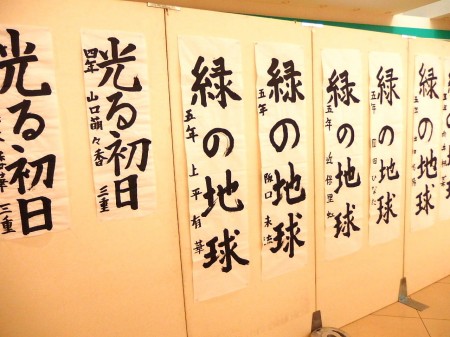 光る初日
三重
光る初日
四年 山口萌々香 三重
緑の地球
五年 上平有華
緑の地球
五年 阪口未流
緑の地球
五年
緑の地球
五年 ひなた
緑の地球
五年